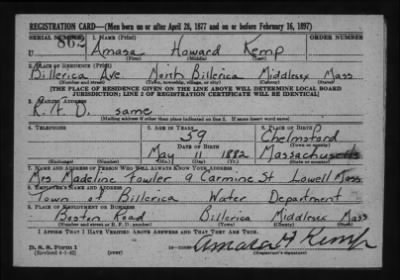 REGISTRATION CARD—(Men born on or after April 28, 1877 and on or before February 16, 1897)
SERIAL NUMBER 1. NAME (Print) ORDER NUMBER
U 862 Amasa Howard Kemp
(First) (Middle) (Last)
2. PLACE OF RESIDENCE (Print)
Billerica Ave North Billerica Middlesex Mass
(Number and street) (Town, township, village, or city) (County) (State)
[THE PLACE OF RESIDENCE GIVEN ON THE LINE ABOVE WILL DETERMINE LOCAL BOARD
JURISDICTION; LINE 2 OF REGISTRATION CERTIFICATE WILL BE IDENTICAL]
3. MAILING ADDRESS
same
[Mailing address if other than place indicated on line 2. If same insert word same]
4. TELEPHONE 5. AGE IN YEARS 6. PLACE OF BIRTH
59 Chelmsford
DATE OF BIRTH (Town or county)
May 11 1882 Massachusetts
(Exchange) (Number) (Mo.) (Day) (Yr.) (State or country)
7. NAME AND ADDRESS OF PERSON WHO WILL ALWAYS KNOW YOUR ADDRESS
Mrs Madeline Fowler 9 Carmine St Lowell Mass
8. EMPLOYER'S NAME AND ADDRESS
Town of Billerica Water Department
9. PLACE OF EMPLOYMENT OR BUSINESS
Boston Road Billerica Middlesex Mass
(Number and street or R. F. D. number) (Town) (County) (State)
I AFFIRM THAT I HAVE VERIFIED ABOVE ANSWERS AND THAT THEY ARE TRUE.
D. S. S. Form 1
(Revised 4-1-42) Amasa H Kemp
(Registrant's signature)